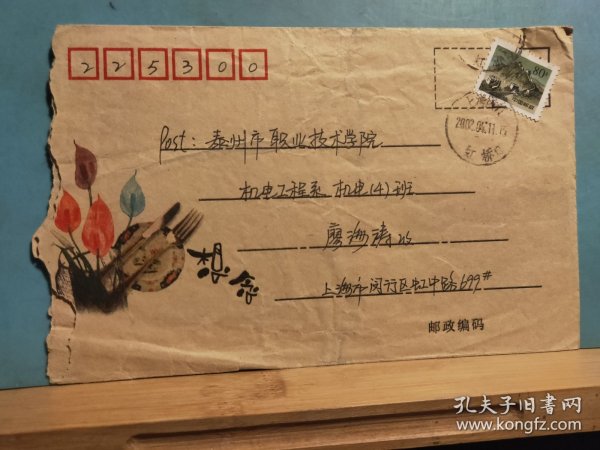 225300
80分
中国邮政
2002.04.11.15
Post: 泰州市职业技术学院
机电工程系 机电(4)班
廖海涛收
上海市闵行区虹中路699#
邮政编码
孔夫子旧书网
www.kongfz.com